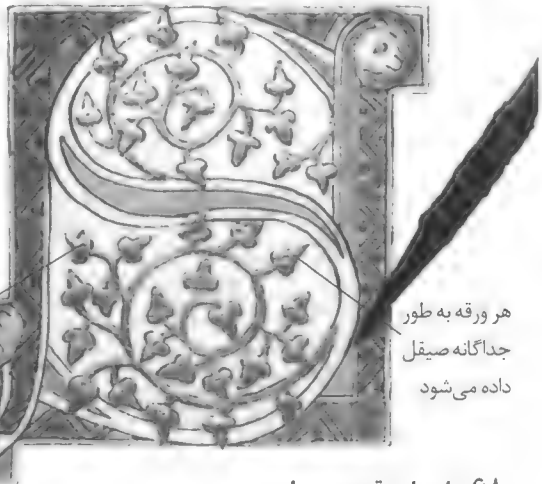 هر ورقه به طور
جداگانه صیقل
داده می‌شود